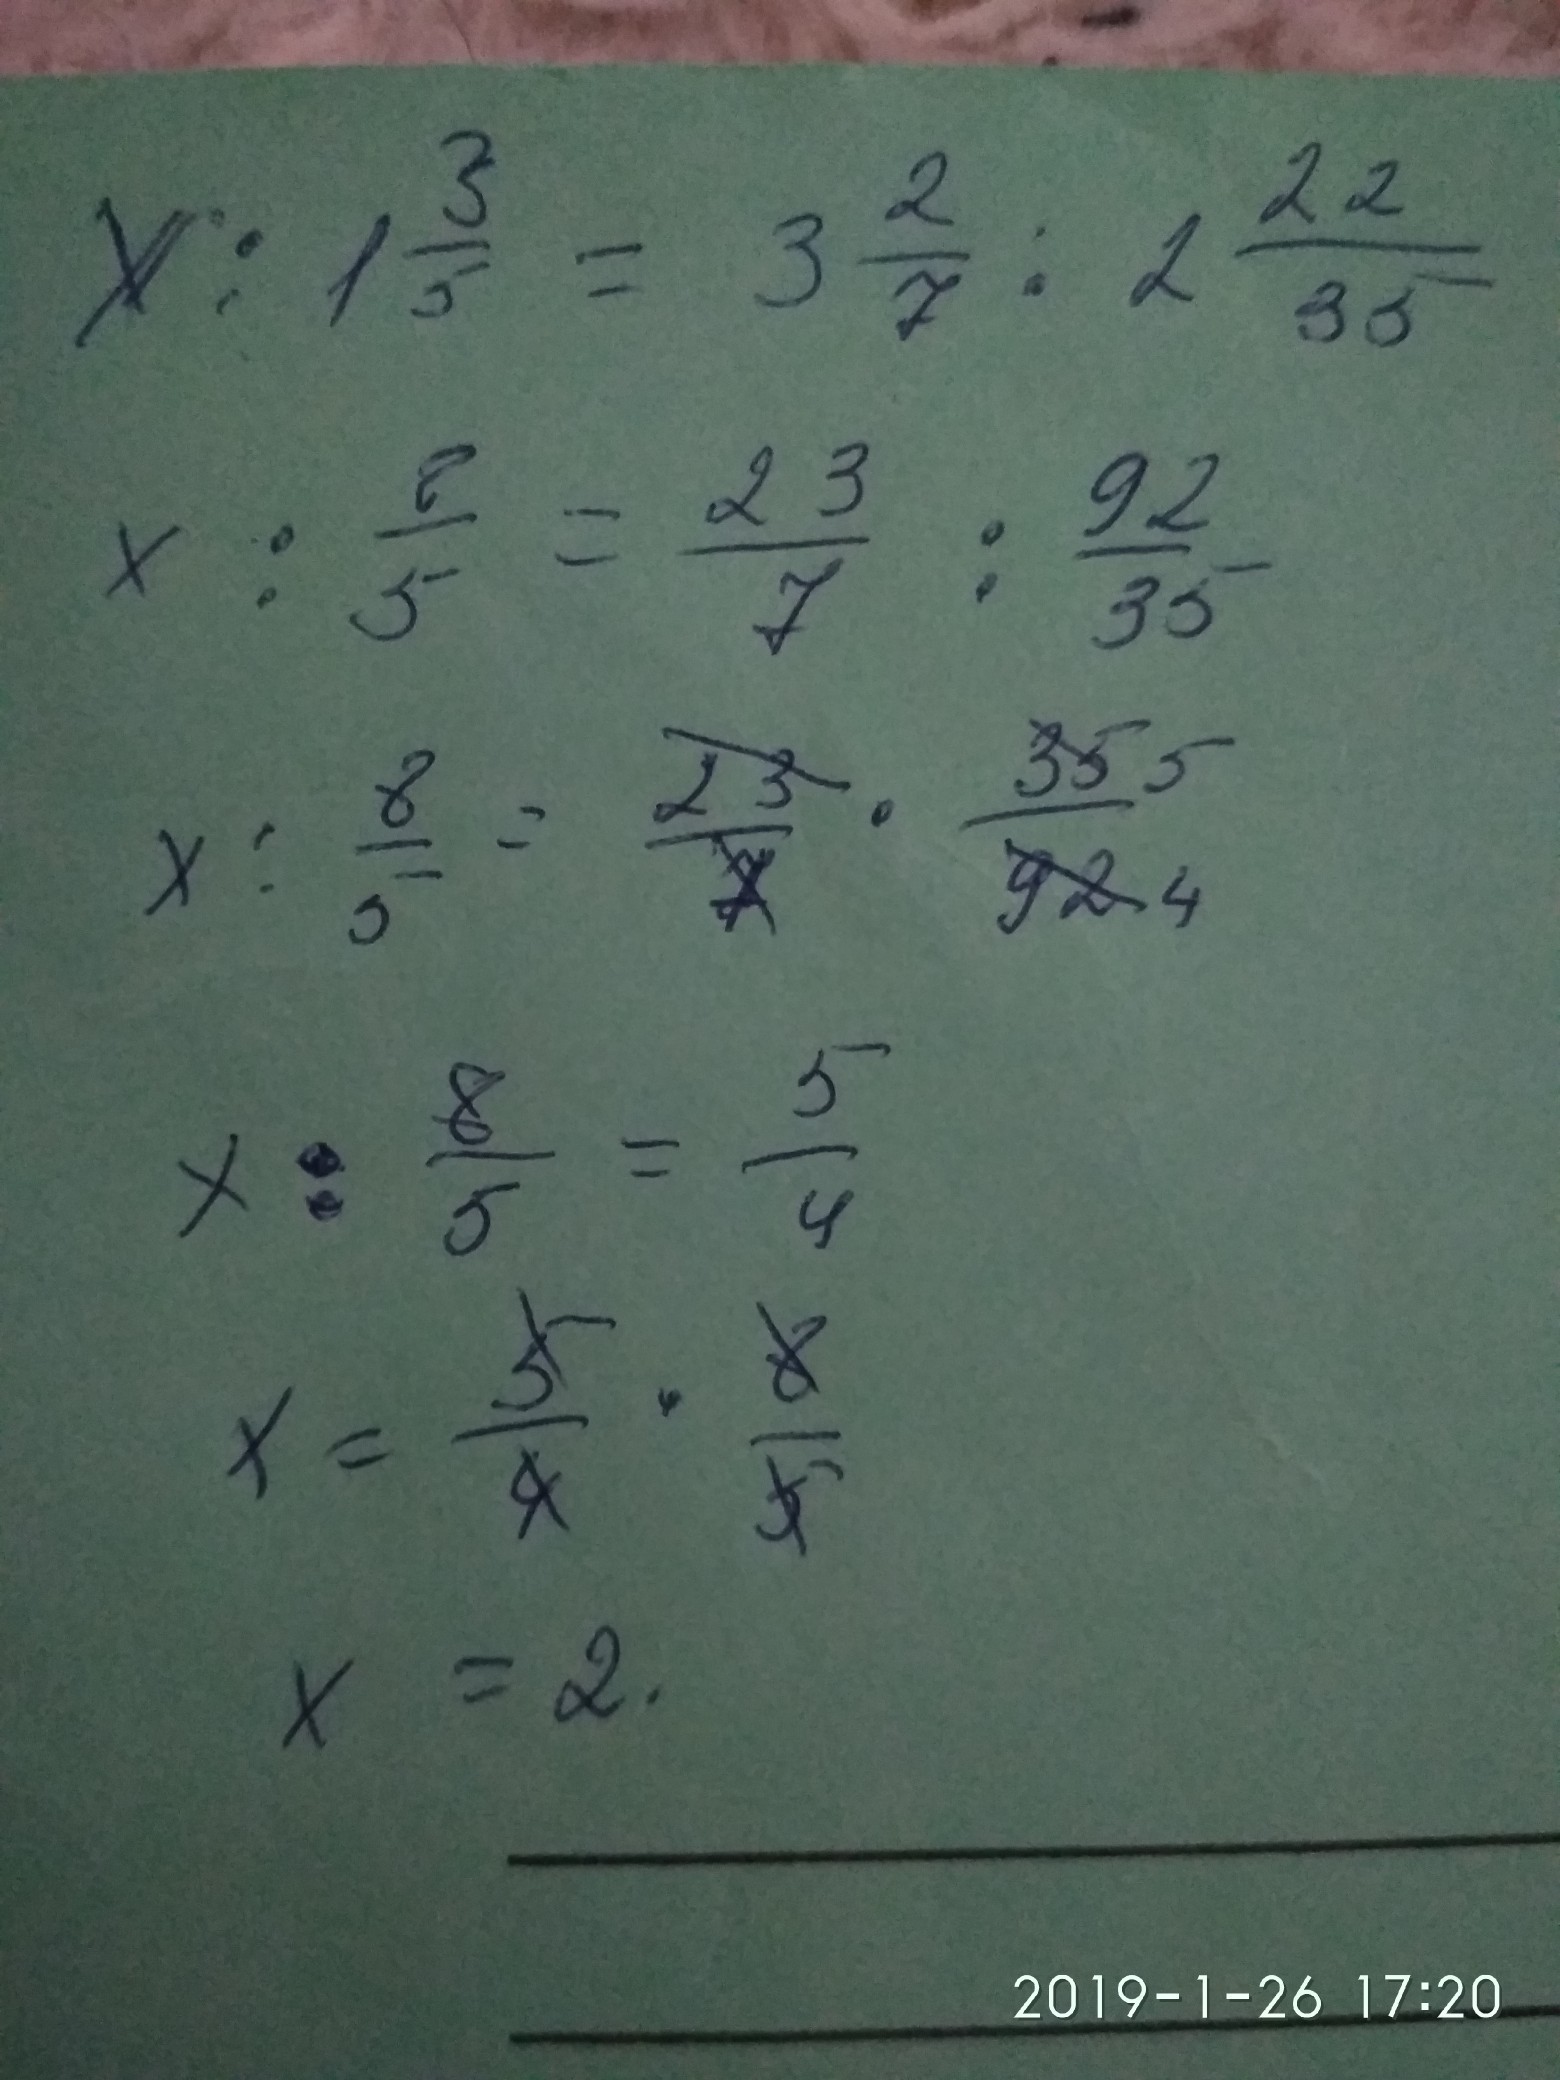 x : 1 3/5 = 3 2/7 : 2 22/35
x : 8/5 = 23/7 : 92/35
x : 8/5 = 23/7 · 35 5/92 4
x : 8/5 = 5/4
x = 5/4 · 8/5
x = 2.
2019-1-26 17:20